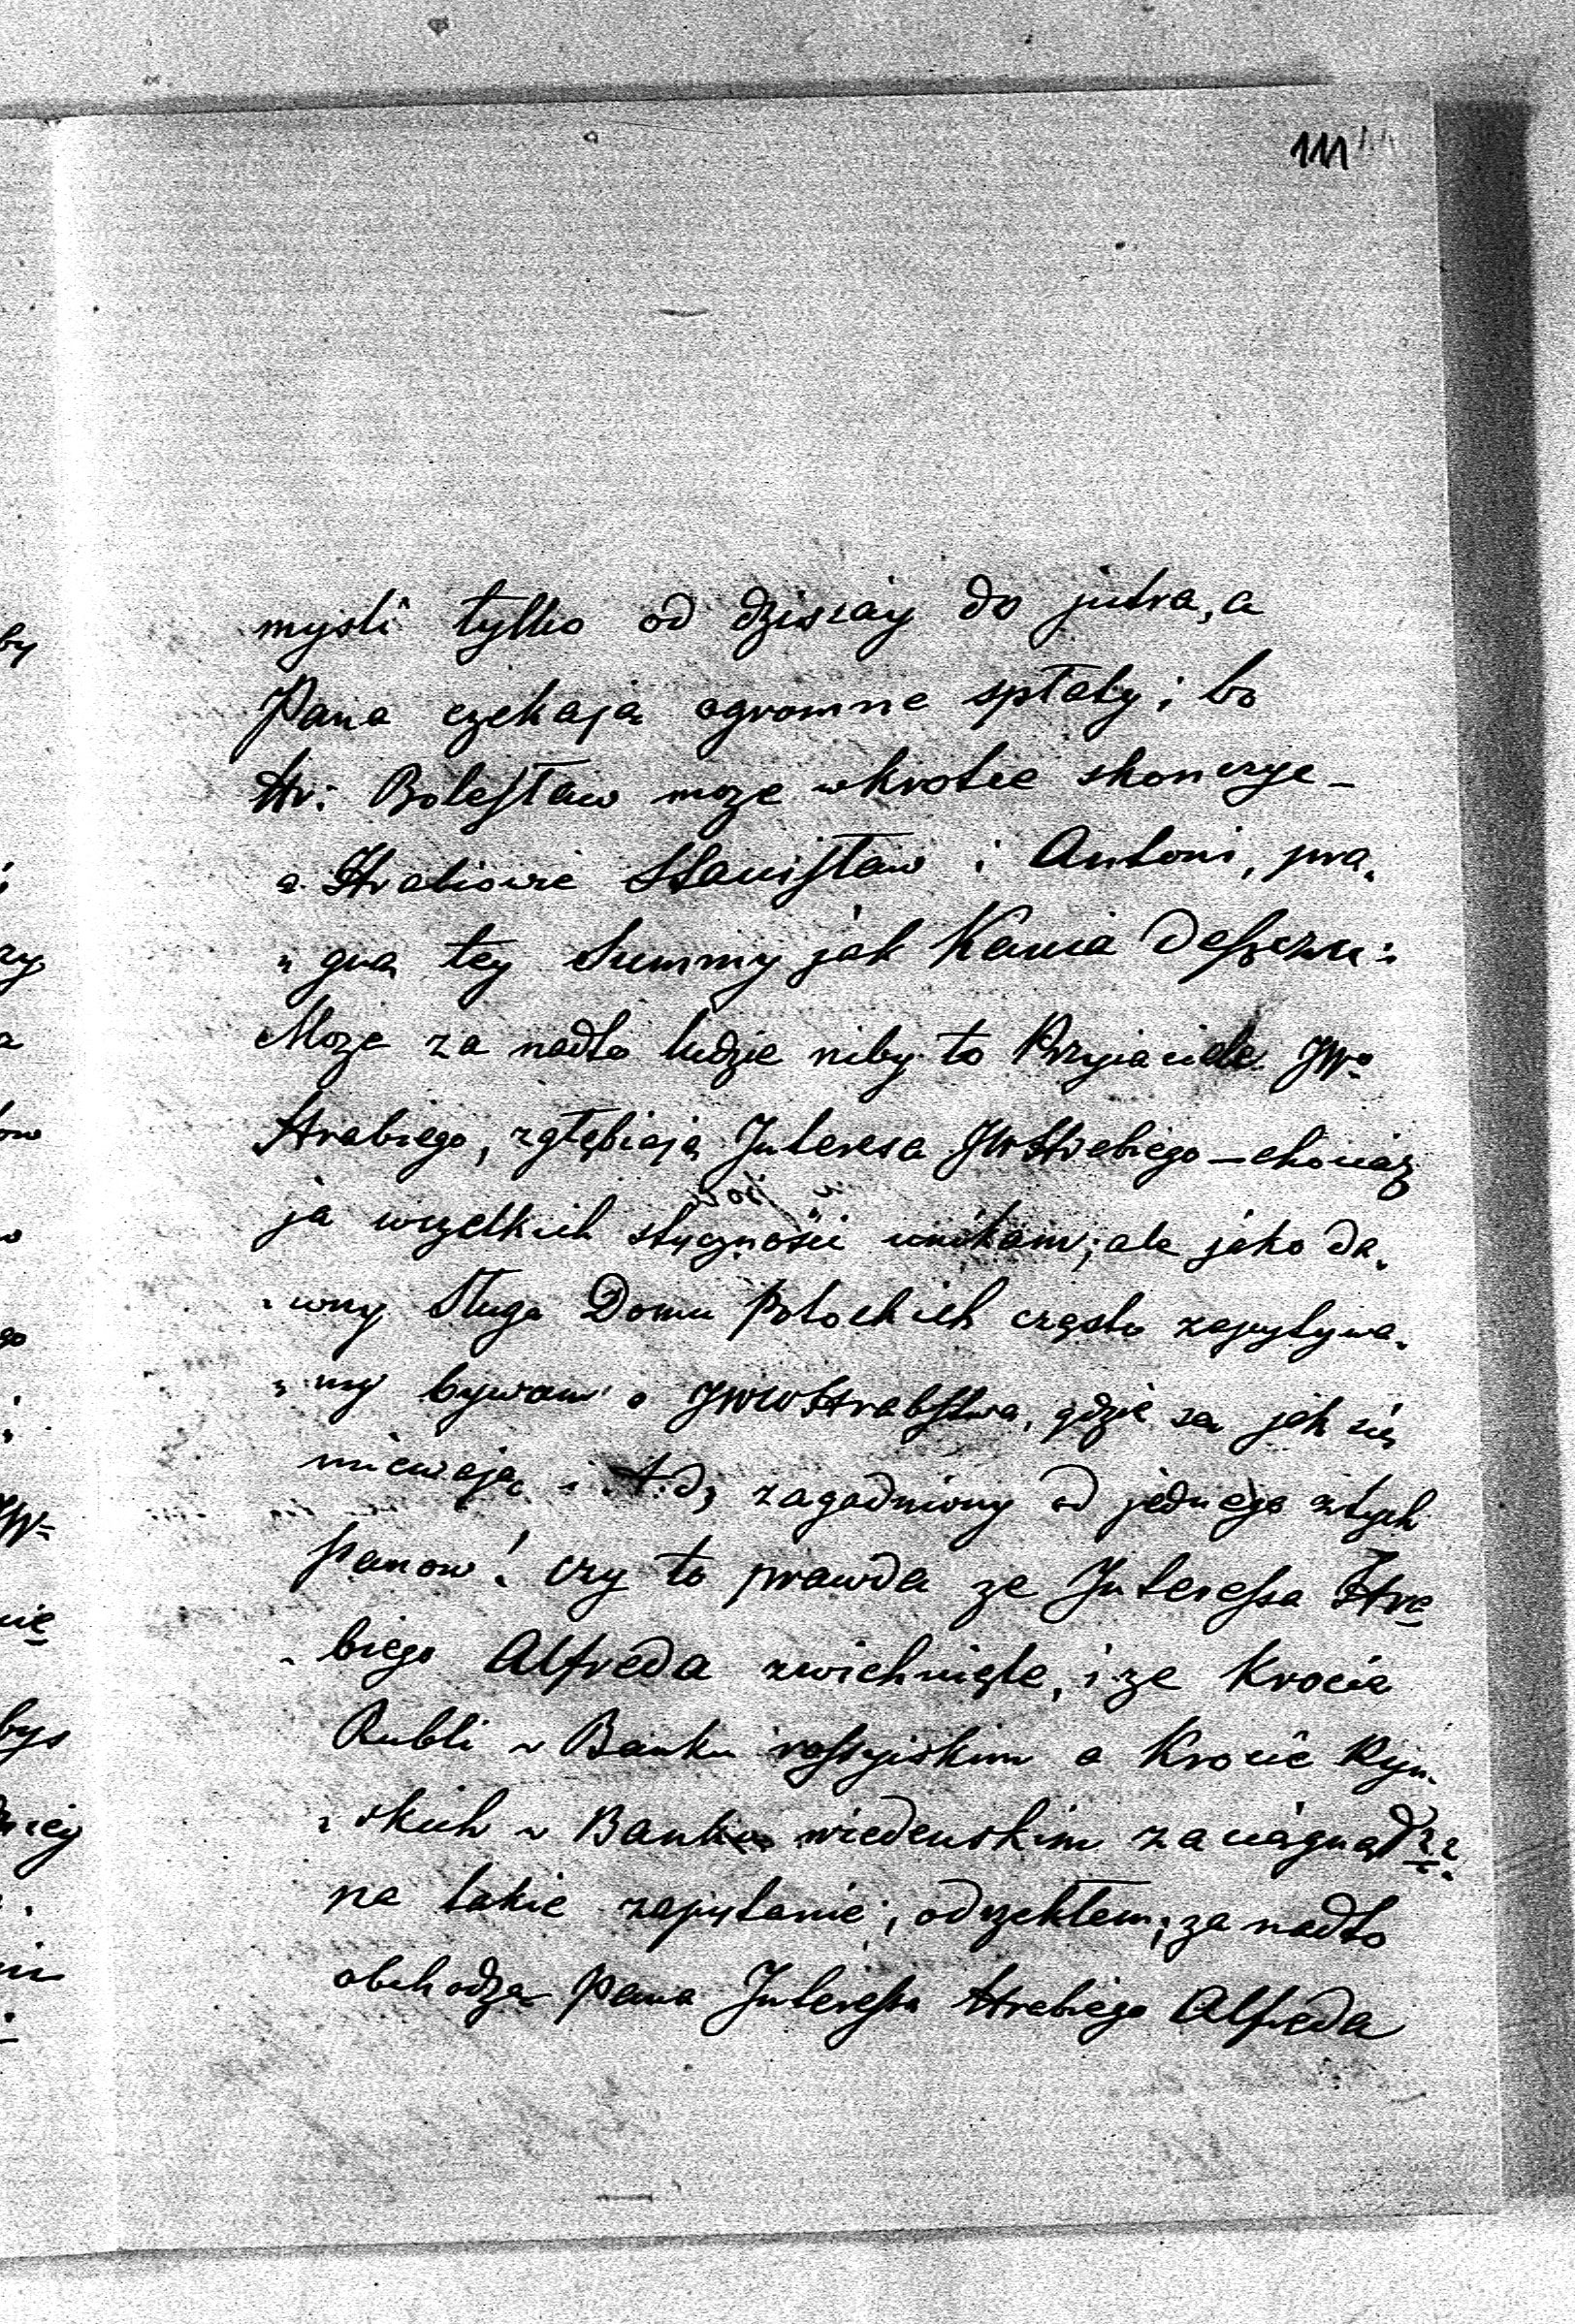 111
mysli tylko od dzisiay do jutra, a
Pana czekają ogromne spłaty; bo
Hr: Bolesław moze wkrotce skonczyc –
a Hrabiowie Stanisław i Antoni, pra„
„gną tey Summy jak Kania deszczu:
Moze za nadto ludzie niby to Przyiaciele JWo
Hrabiego, zgłębiają Interesa JWHrabiego – chociaz
ja wszelkich styczności unikam; ale jako da„
„wny Sługa Domu Potockich często zapytywa„
„ny bywam o JWWHrabstwa, gdzie są jak się
miewają i t.d, zagadniony od jednego z tych
panow! czy to prawda ze Interessa Hra
„biego Alfreda zwichnięte, i ze Krocie
Rubli w Banku rossyiskim a Krocie Ryn„
„skich w Banku wiedenskim zaciągnął??
na takie zapytanie, odrzekłem; za nadto
obchodzą Pana Interessa Hrabiego Alfreda